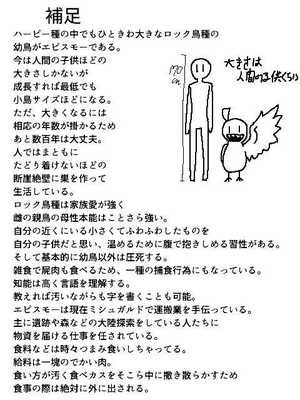 補足
ハーピー種の中でもひときわ大きなロック鳥種の
幼鳥がエビスモーである。
今は人間の子供ほどの
大きさしかないが
成長すれば最低でも
小島サイズほどになる。
ただ、大きくなるには
相応の年数が掛かるため
あと数百年は大丈夫。
人ではまともに
たどり着けないほどの
断崖絶壁に巣を作って
生活している。
ロック鳥種は家族愛が強く
雌の親鳥の母性本能はことさら強い。
自分の近くにいる小さくてふわふわしたものを
自分の子供だと思い、温めるために腹で抱きしめる習性がある。
そして基本的に幼鳥以外は圧死する。
雑食で屍肉も食べるため、一種の捕食行為にもなっている。
知能は高く言語を理解する。
教えれば汚いながらも字を書くことも可能。
エビスモーは現在ミシュガルドで運搬業を手伝っている。
主に遺跡や森などの大陸探索をしている人たちに
物資を届ける仕事を任されている。
食料などは時々つまみ食いしちゃってる。
給料は一塊のでかい肉。
食い方が汚く食べカスをそこら中に撒き散らかすため
食事の際は絶対に外に出される。
170
cm
大きさは
人間の子供くらい